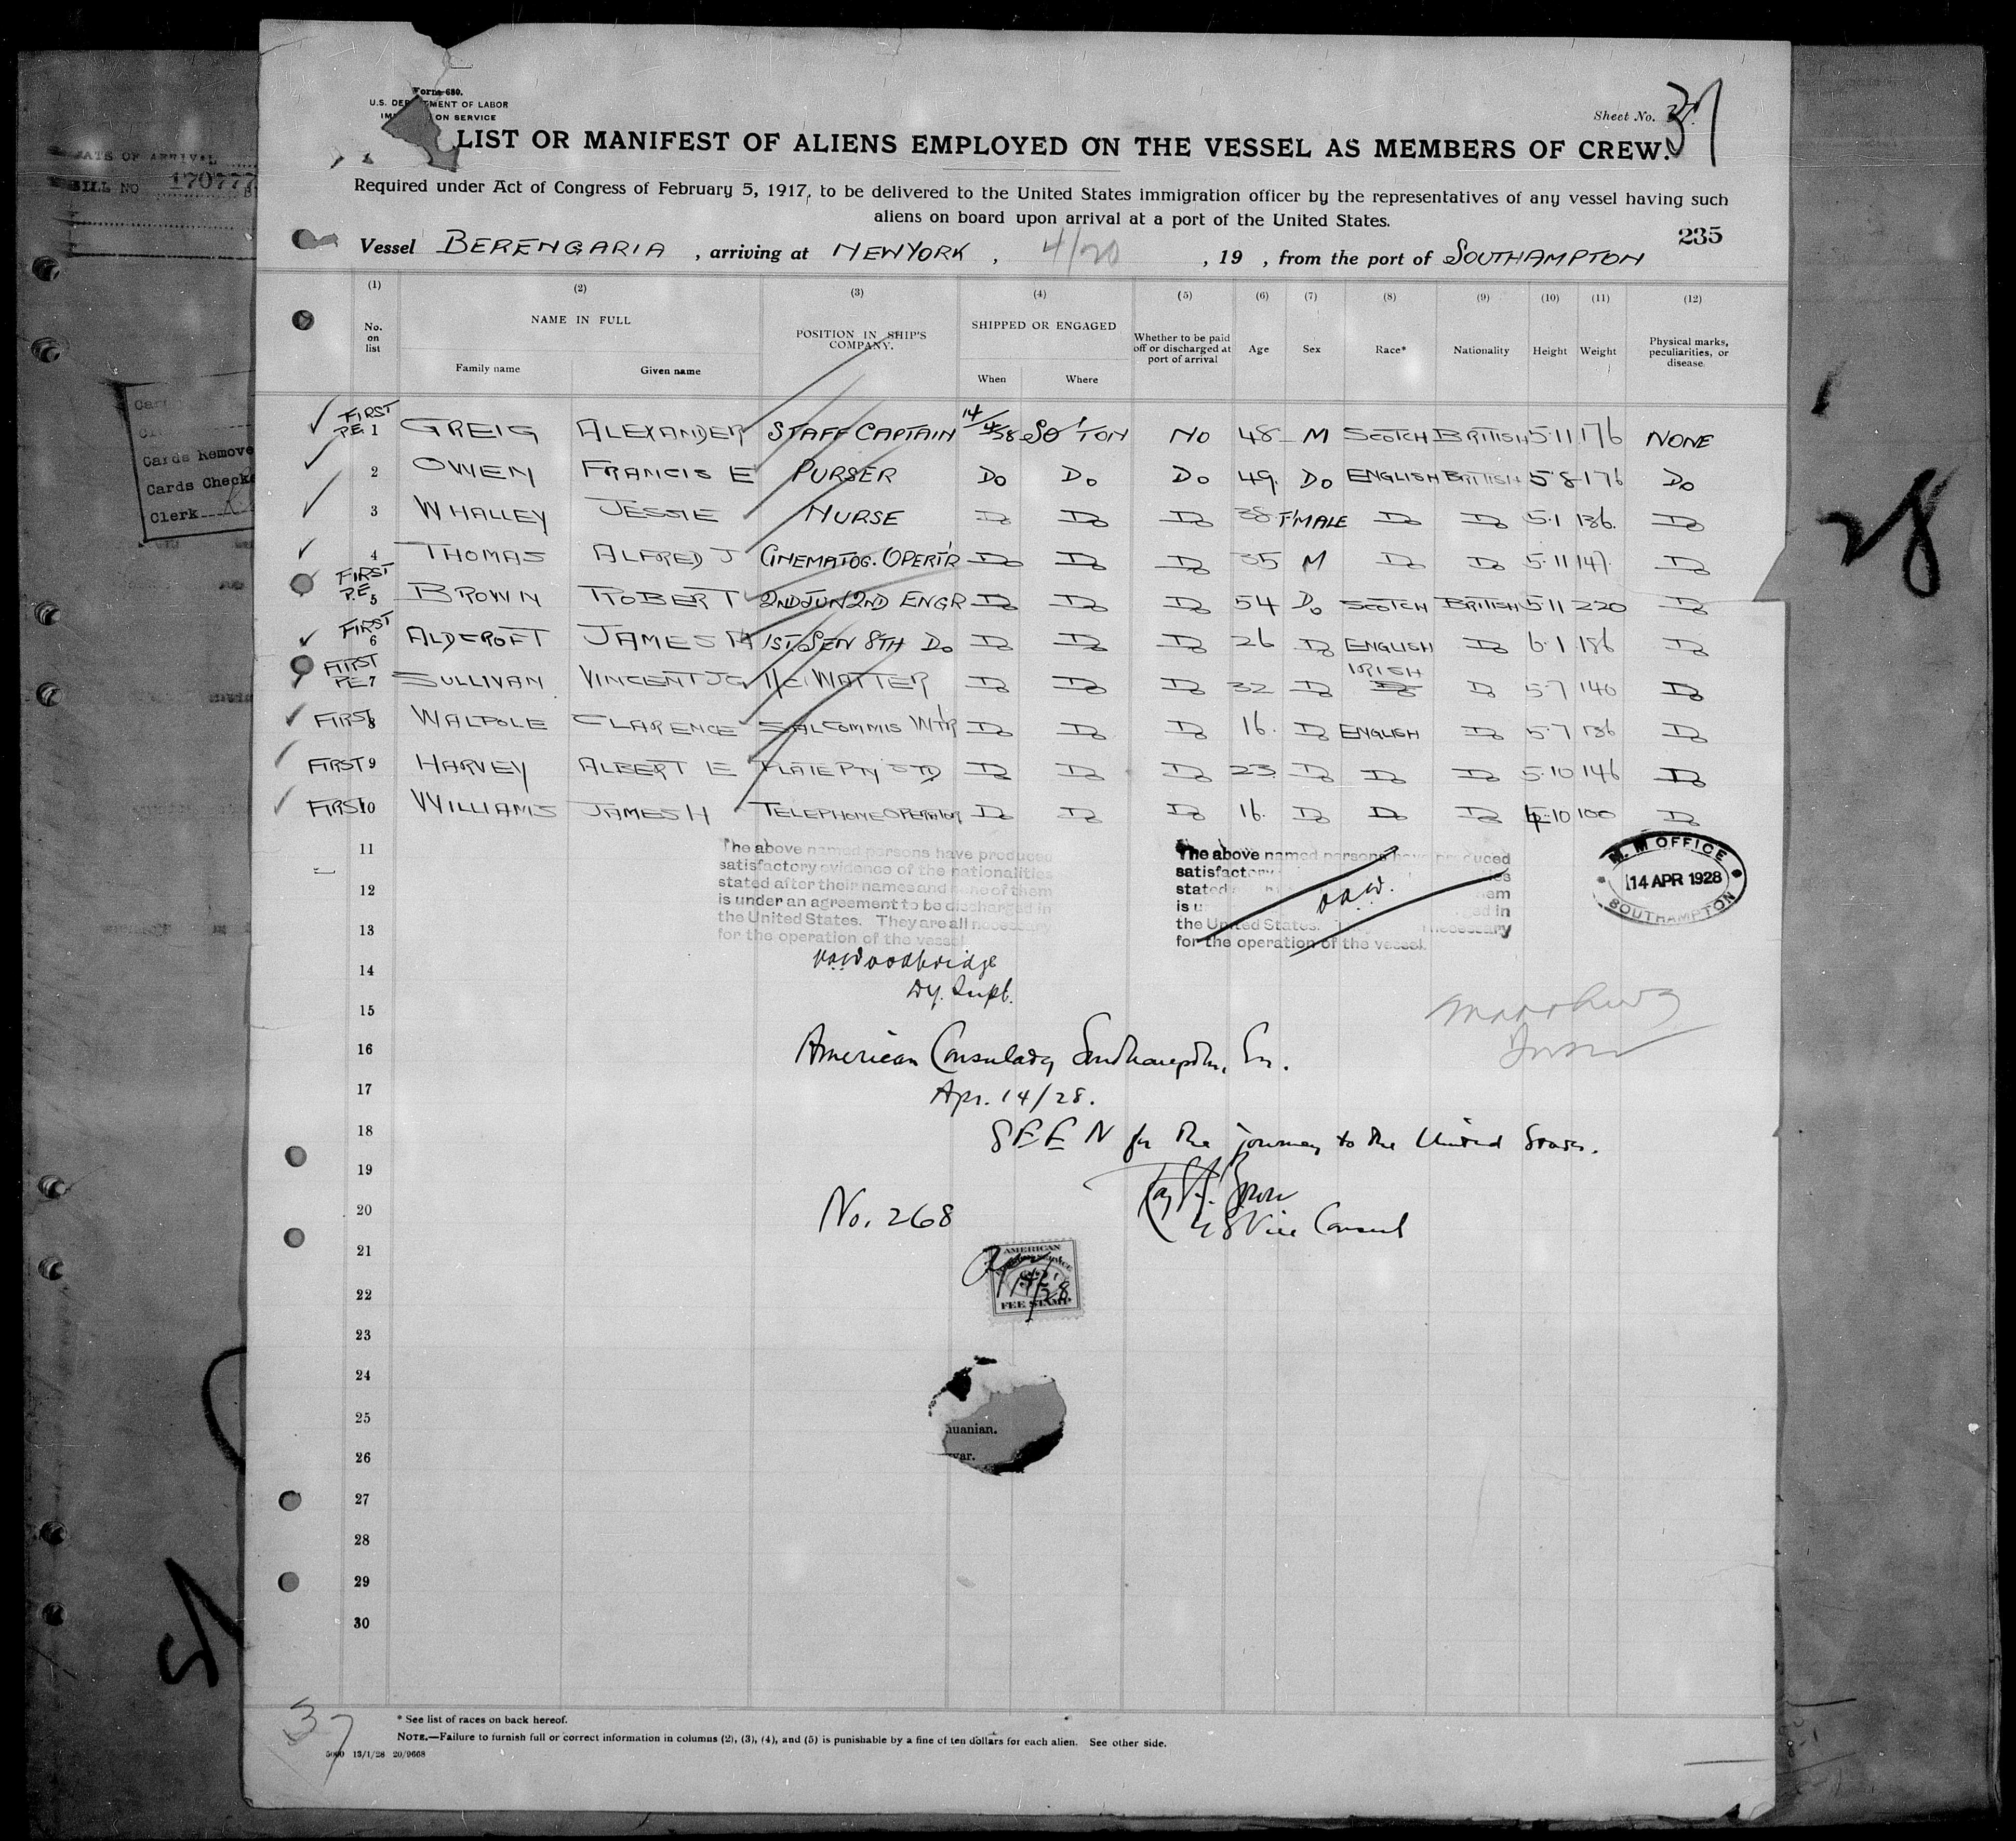 Form 680.
U.S. DEPARTMENT OF LABOR
IMMIGRATION SERVICE
Sheet No. 37
LIST OR MANIFEST OF ALIENS EMPLOYED ON THE VESSEL AS MEMBERS OF CREW.
Required under Act of Congress of February 5, 1917, to be delivered to the United States immigration officer by the representatives of any vessel having such
aliens on board upon arrival at a port of the United States.
235
Vessel BERENGARIA , arriving at NEW YORK , 4/20 , 19 , from the port of SOUTHAMPTON
(1) (2) (3) (4) (5) (6) (7) (8) (9) (10) (11) (12)
No. on list NAME IN FULL Family name Given name POSITION IN SHIP'S COMPANY. SHIPPED OR ENGAGED When Where Whether to be paid off or discharged at port of arrival Age Sex Race* Nationality Height Weight Physical marks, peculiarities, or disease.
FIRST P.E. 1 GREIG ALEXANDER STAFF CAPTAIN 14/4/28 SO'TON NO 48 M SCOTCH BRITISH 5·11 176 NONE
2 OWEN FRANCIS E PURSER DO DO DO 49 DO ENGLISH BRITISH 5·8 176 DO
3 WHALLEY JESSIE NURSE DO DO DO 38 F'MALE DO DO 5·1 136 DO
4 THOMAS ALFRED J CINEMATOG. OPERT'R DO DO DO 35 M DO DO 5·11 147 DO
FIRST P.E. 5 BROWN ROBERT 2ND JUN 2ND ENGR DO DO DO 54 DO SCOTCH BRITISH 5·11 220 DO
FIRST 6 ALDCROFT JAMES 1ST SEN 8TH DO DO DO DO 26 DO ENGLISH DO 6·1 186 DO
FIRST P.E. 7 SULLIVAN VINCENT JG WAITER DO DO DO 32 DO IRISH DO DO 5·7 140 DO
FIRST 8 WALPOLE CLARENCE SAL COMMIS WT'R DO DO DO 16 DO ENGLISH DO 5·7 136 DO
FIRST 9 HARVEY ALBERT E PLATE P'TY STD DO DO DO 23 DO DO DO 5·10 146 DO
FIRST 10 WILLIAMS JAMES H TELEPHONE OPERATOR DO DO DO 16 DO DO DO 4·10 100 DO
11
12
13
14
15
16
17
18
19
20
21
22
23
24
25
26
27
28
29
30
The above named persons have produced
satisfactory evidence of the nationalities
stated after their names and none of them
is under an agreement to be discharged in
the United States. They are all necessary
for the operation of the vessel
Woodbridge
Dy. Supt.
The above named persons have produced
satisfactory
stated them
is u
the United States. necessary
for the operation of the vessel.
M. M OFFICE
14 APR 1928
SOUTHAMPTON
American Consulate, Southampton, En.
Apr. 14/28.
SEEN for the journey to the United States.
US Vice Consul
No. 268
AMERICAN
FEE STAMP
huanian.
var.
37
* See list of races on back hereof.
NOTE.—Failure to furnish full or correct information in columns (2), (3), (4), and (5) is punishable by a fine of ten dollars for each alien. See other side.
5000 13/1/28 20/9668
DATE OF ARRIVAL
BILL NO 170777
Cards Remove
Cards Check
Clerk
28